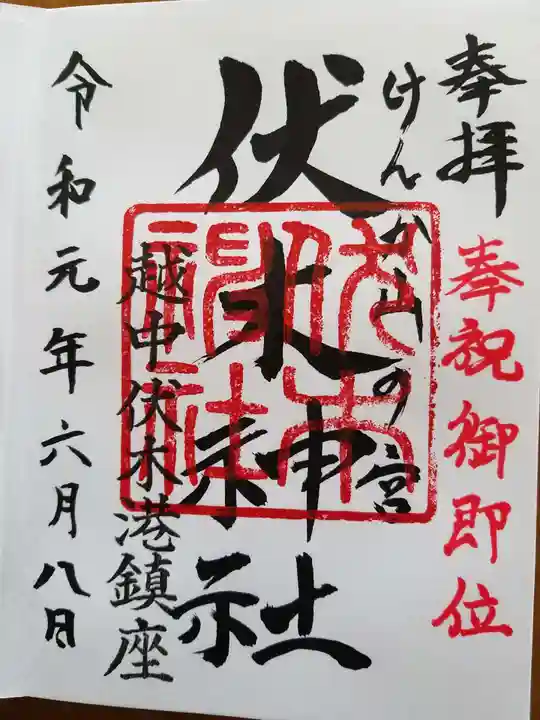 奉拝
奉祝御即位
けんか山の宮
伏木神社
伏木神社
越中伏木港鎮座
令和元年六月八日